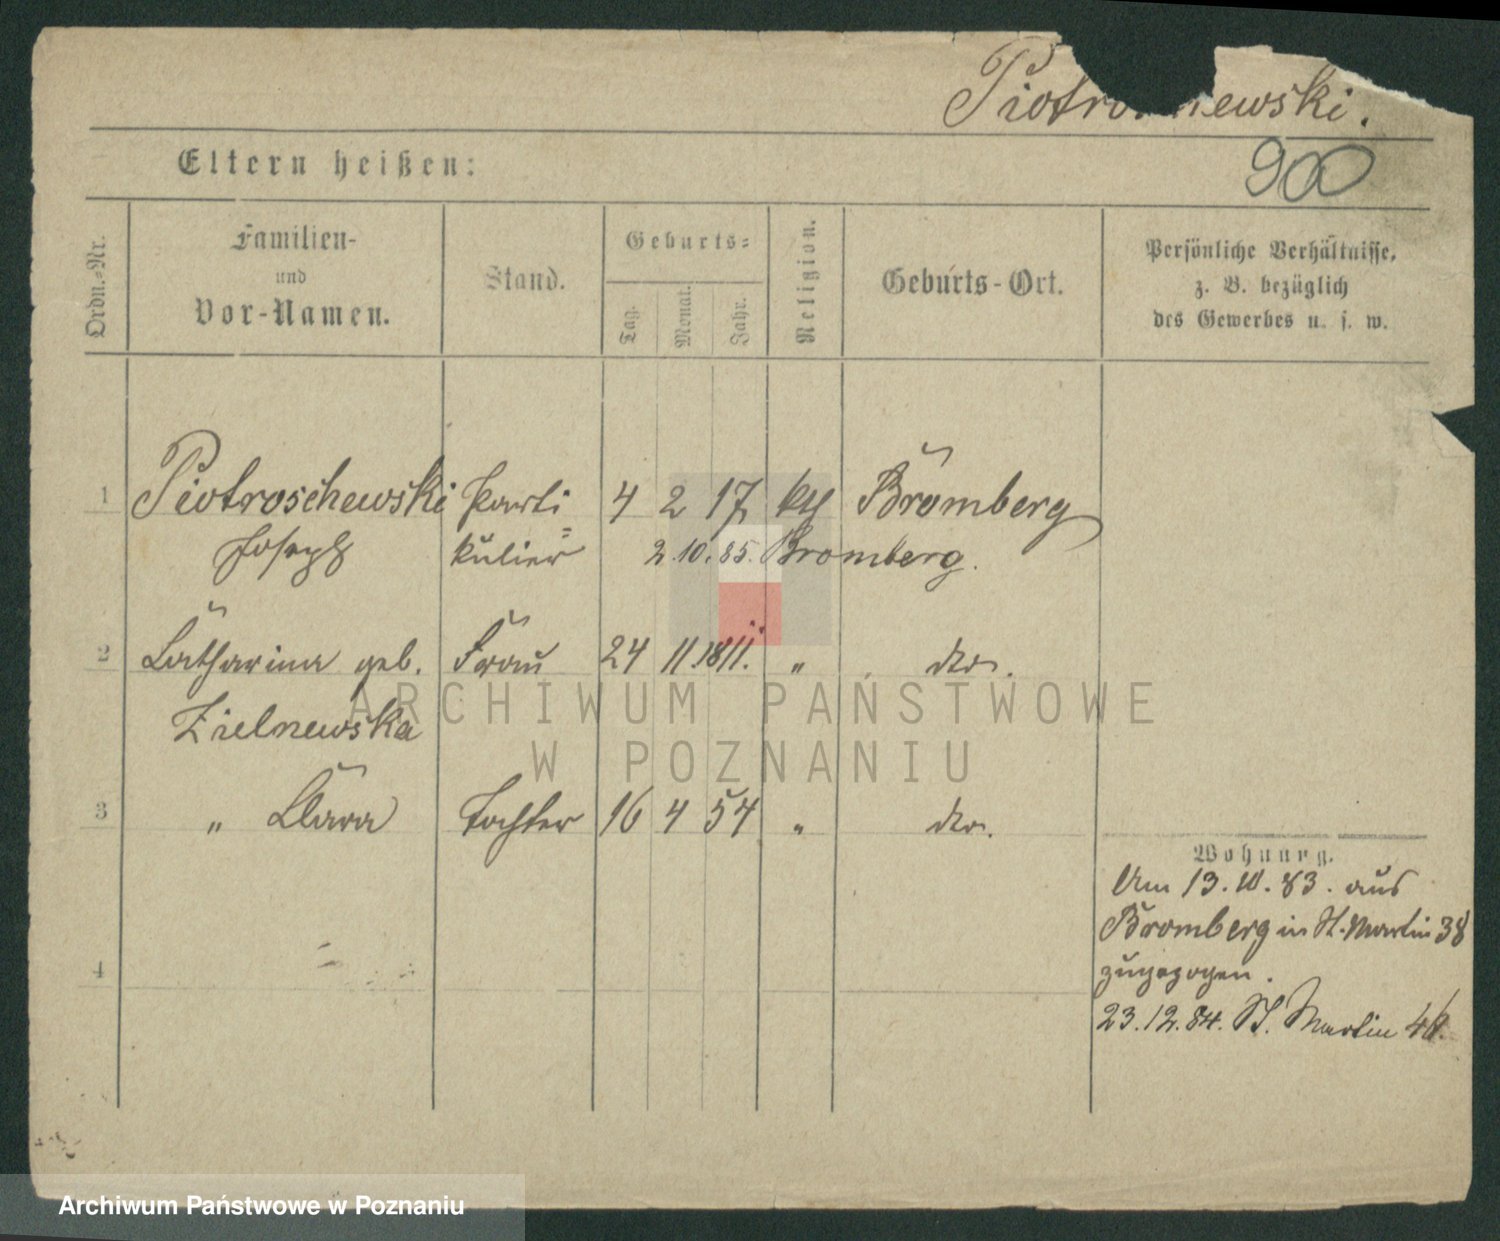 Piotro newski.
900
Eltern heißen:
Ordn.-Nr.
Familien-
und
Vor-Namen.
Stand.
Geburts-
Tag.
Monat.
Jahr.
Religion.
Geburts-Ort.
Persönliche Verhältnisse,
z. B. bezüglich
des Gewerbes u. s. w.
1 Piotroschewski Parti 4 2 17 kth Bromberg
Joseph kulier 2.10.85. Bromberg.
2 Catharina geb. Frau 24 11. 1811. " dto.
Zielnewska
3 " Clara Tochter 16 4 54 " dto.
Wohnung.
Am 13.10.83. aus
Bromberg in St. Martin 38
zugezogen.
4
23.12.84. St. Martin
ARCHIWUM PAŃSTWOWE
W POZNANIU
Archiwum Państwowe w Poznaniu